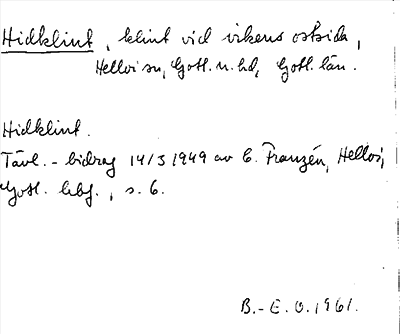 Hidklint, klint vid vikens ostsida,
Hellvi sn, Gotl. n. hd, Gotl. län.
Hidklint.
Tävl.-bidrag 14/3 1949 av E. Franzén, Hellvi,
Gotl. , s. 6.
B.-E. O. 1961.